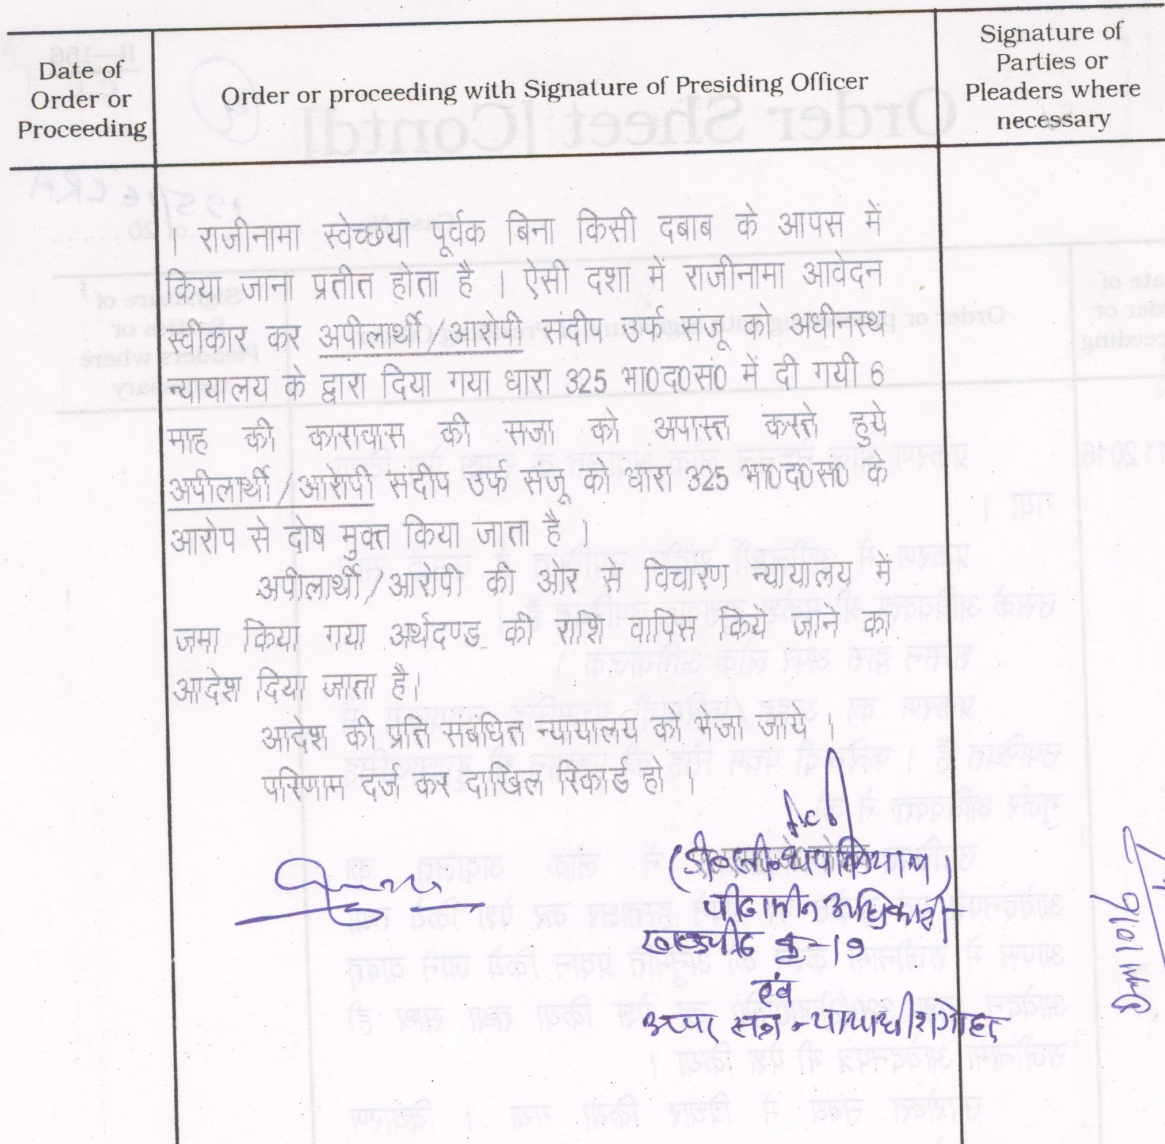 Date of
Order or
Proceeding
Order or proceeding with Signature of Presiding Officer
Signature of
Parties or
Pleaders where
necessary
। राजीनामा स्वेच्छया पूर्वक बिना किसी दबाब के आपस में
किया जाना प्रतीत होता है । ऐसी दशा में राजीनामा आवेदन
स्वीकार कर अपीलार्थी/आरोपी संदीप उर्फ संजू को अधीनस्थ
न्यायालय के द्वारा दिया गया धारा 325 भा0द0सं0 में दी गयी 6
माह की कारावास की सजा को अपास्त करते हुये
अपीलार्थी/आरोपी संदीप उर्फ संजू को धारा 325 भा0द0सं0 के
आरोप से दोष मुक्त किया जाता है ।
अपीलार्थी/आरोपी की ओर से विचारण न्यायालय में
जमा किया गया अर्थदण्ड की राशि वापिस किये जाने का
आदेश दिया जाता है।
आदेश की प्रति संबंधित न्यायालय को भेजा जाये ।
परिणाम दर्ज कर दाखिल रिकार्ड हो ।
पीठासीन अधिकारी
खण्डपीठ
-19
एवं
अपर सत्र न्यायाधीश गोहद